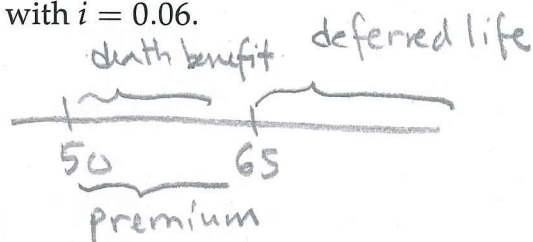 with i = 0.06.
death benefit
deferred life
50
65
premium